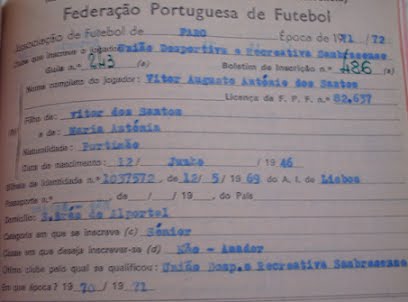 Federação Portuguesa de Futebol
Associação de Futebol de FARO Época de 1971 /72
Clube que inscreve o jogador: União Desportiva e Recreativa Sambrasense
Guia n.º 243 (a) Boletim de Inscrição n.º 486 (a)
Nome completo do jogador: Vitor Augusto António dos Santos
Licença da F. P. F. n.º 82.637
Filho de: vitor dos Santos
e de: Maria Antónia
Naturalidade: Portimão
Data de nascimento: 12/ Junho / 19 46
Bilhete de Identidade n.º 1037572, de 12/ 5/ 19 69 do A. I. de Lisboa
Passaporte n.º , de / / 19 , do País
Domicílio: S.Brás de Alportel
Categoria em que se inscreve (c) Sénior
Classe em que deseja inscrever-se (d) Não - Amador
Último clube pelo qual se qualificou: União Desp.e Recreativa Sambrasense
Em que época? 19 70 / 19 71